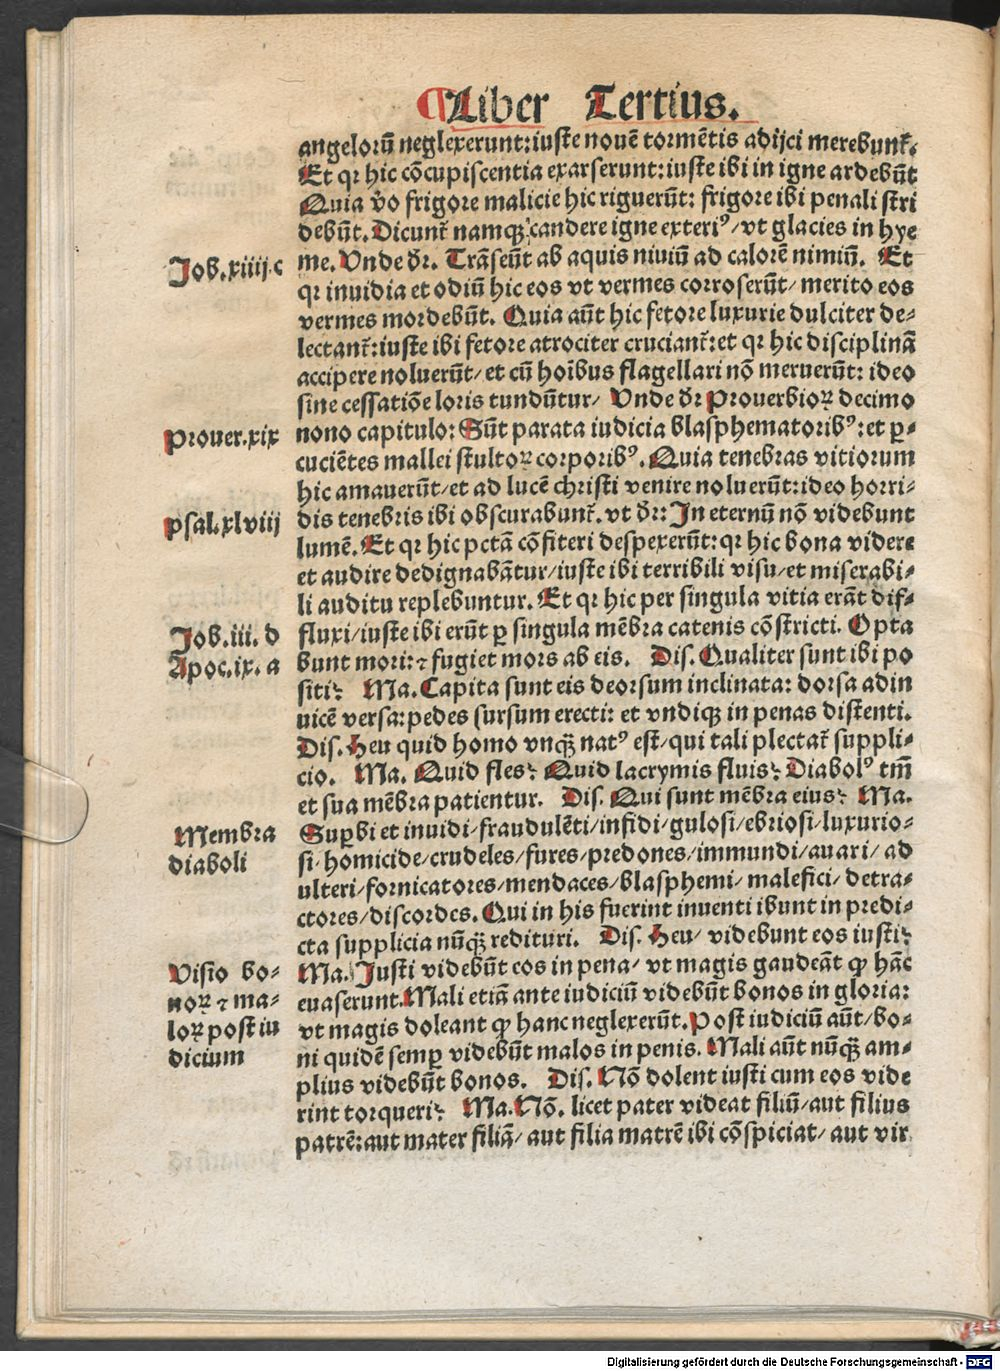 ¶Liber Tertius.
angeloꝝ neglexerunt: iuste nouē tormētis adijci merebunt̄.
Et qꝛ hic cōcupiscentia exarserunt: iuste ibi in igne ardebūt
Quia v̄o frigore malicie hic riguerūt: frigore ibi penali stri
debūt. Dicunt̄ namqꝫ candere igne exteriꝰ/ vt glacies in hye
Job.xiiij.c
me. Vnde dr̄. Trāseūt ab aquis niuiū ad calorē nimiū. Et
qꝛ inuidia et odiū hic eos vt vermes corroserūt/ merito eos
vermes mordebūt. Quia aūt hic fetore luxurie dulciter de⸗
lectant̄: iuste ibi fetore atrociter cruciant̄: et qꝛ hic disciplinā
accipere noluerūt/ et cū hoībus flagellari nō meruerūt: ideo
sine cessatiōe loris tundūtur/ Vnde dr̄ Prouerbioꝝ decimo
Prouer.xix
nono capitulo: Sūt parata iudicia blasphematoribꝰ: et ꝑ⸗
cuciētes mallei stultoꝝ corporibꝰ. Quia tenebras vitiorum
hic amauerūt/ et ad lucē christi venire noluerūt: ideo horri⸗
Psal.xlviij
dis tenebris ibi obscurabunt̄. vt dr̄: In eternū nō videbunt
lumē. Et qꝛ hic pctā cōfiteri despexerūt: qꝛ hic bona videre
et audire dedignabātur/ iuste ibi terribili visu/ et miserabi⸗
li auditu replebuntur. Et qꝛ hic per singula vitia erāt dif⸗
Job.iii. d
fluxi/ iuste ibi erūt ꝑ singula mēbra catenis cōstricti. Opta
Apoc.ix. a
bunt mori: ⁊ fugiet mors ab eis. Dis. Qualiter sunt ibi po
siti? Ma. Capita sunt eis deorsum inclinata: dorsa adin
uicē versa: pedes sursum erecti: et vndiqꝫ in penas distenti.
Dis. Heu quid homo vnqꝫ̄ natꝰ est/ qui tali plectat̄ suppli⸗
cio. Ma. Quid fles? Quid lacrymis fluis? Diabolꝰ tm̄
et sua mēbra patientur. Dis. Qui sunt mēbra eius? Ma.
Membra
diaboli
Suꝑbi et inuidi/ fraudulēti/ infidi/ gulosi/ ebriosi/ luxurio⸗
si/ homicide/ crudeles/ fures/ predones/ immundi/ auari/ ad
ulteri/ fornicatores/ mendaces/ blasphemi/ malefici/ detra⸗
ctores/ discordes. Qui in his fuerint inuenti ibunt in predi⸗
cta supplicia nūqꝫ̄ redituri. Dis. Heu/ videbunt eos iusti?
Visio bo⸗
noꝝ ⁊ ma⸗
loꝝ post iu
dicium
Ma. Justi videbūt eos in pena/ vt magis gaudeāt ꝙ hāc
euaserunt. Mali etiā ante iudiciū videbūt bonos in gloria:
vt magis doleant ꝙ hanc neglexerūt. Post iudiciū aūt/ bo⸗
ni quidē semꝑ videbūt malos in penis. Mali aūt nūqꝫ̄ am⸗
plius videbūt bonos. Dis. Nō dolent iusti cum eos vide
rint torqueri? Ma. Nō. licet pater videat filiū/ aut filius
patrē: aut mater filiā/ aut filia matrē ibi cōspiciat/ aut vir
Digitalisierung gefördert durch die Deutsche Forschungsgemeinschaft - DFG